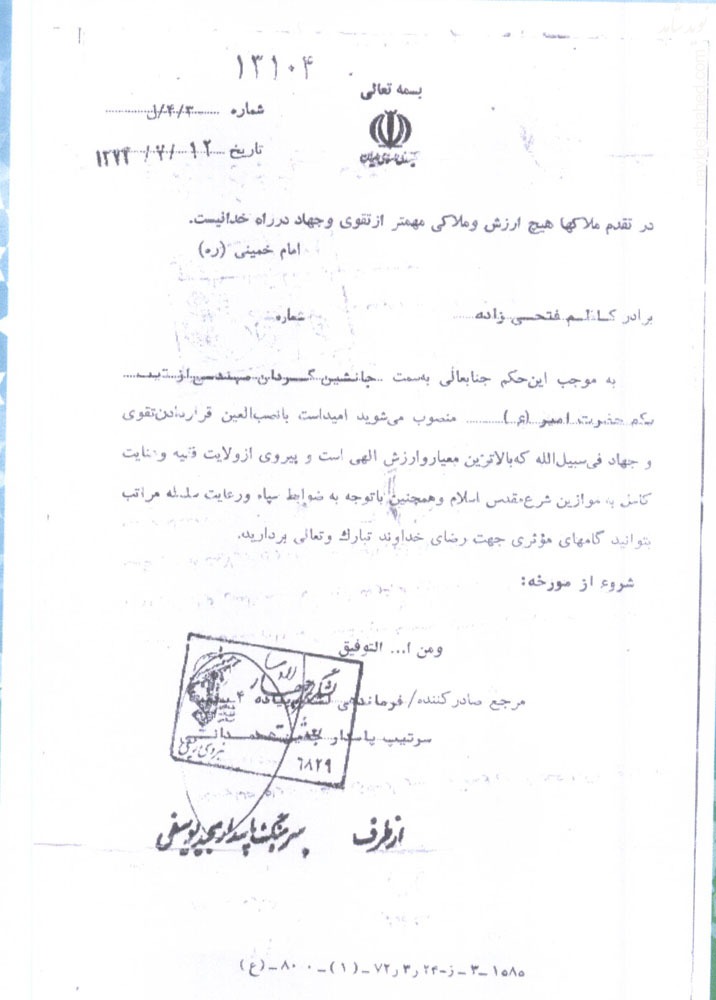 ۱۳۱۰۴
بسمه تعالی
شماره ۴/۳/ل
تاریخ ۱۳۷۴/۷/۱۲
در تقدم ملاکها هیچ ارزش وملاکی مهمتر ازتقوی وجهاد درراه خدانیست.
امام خمینی (ره)
برادر کاظم فتحی زاده شماره
به موجب این‌حکم جنابعالی به‌سمت جانشین گردان مهندسی از تیپ
یکم حضرت امیر (ع) منصوب می‌شوید امیداست بانصب‌العین قراردادن‌تقوی
و جهاد فی‌سبیل‌الله که‌بالاترین معیاروارزش الهی است و پیروی ازولایت فقیه وعنایت
کامل به موازین شرع‌مقدس اسلام وهمچنین باتوجه به ضوابط سپاه ورعایت سلسله مراتب
بتوانید گامهای مؤثری جهت رضای خداوند تبارک وتعالی بردارید.
شروع از مورخه:
ومن ا... التوفیق
مرجع صادرکننده/ فرماندهی لشکر پیاده ۴
سرتیپ پاسدار
لشگر چهار
نیروی زمینی
۶۸۲۹
ازطرف سرهنگ پاسدار یوسفی
۱۵۸۵-۳-ز-۲۴ر۳ر۷۲-(۱)-۸۰۰۰-(ع)